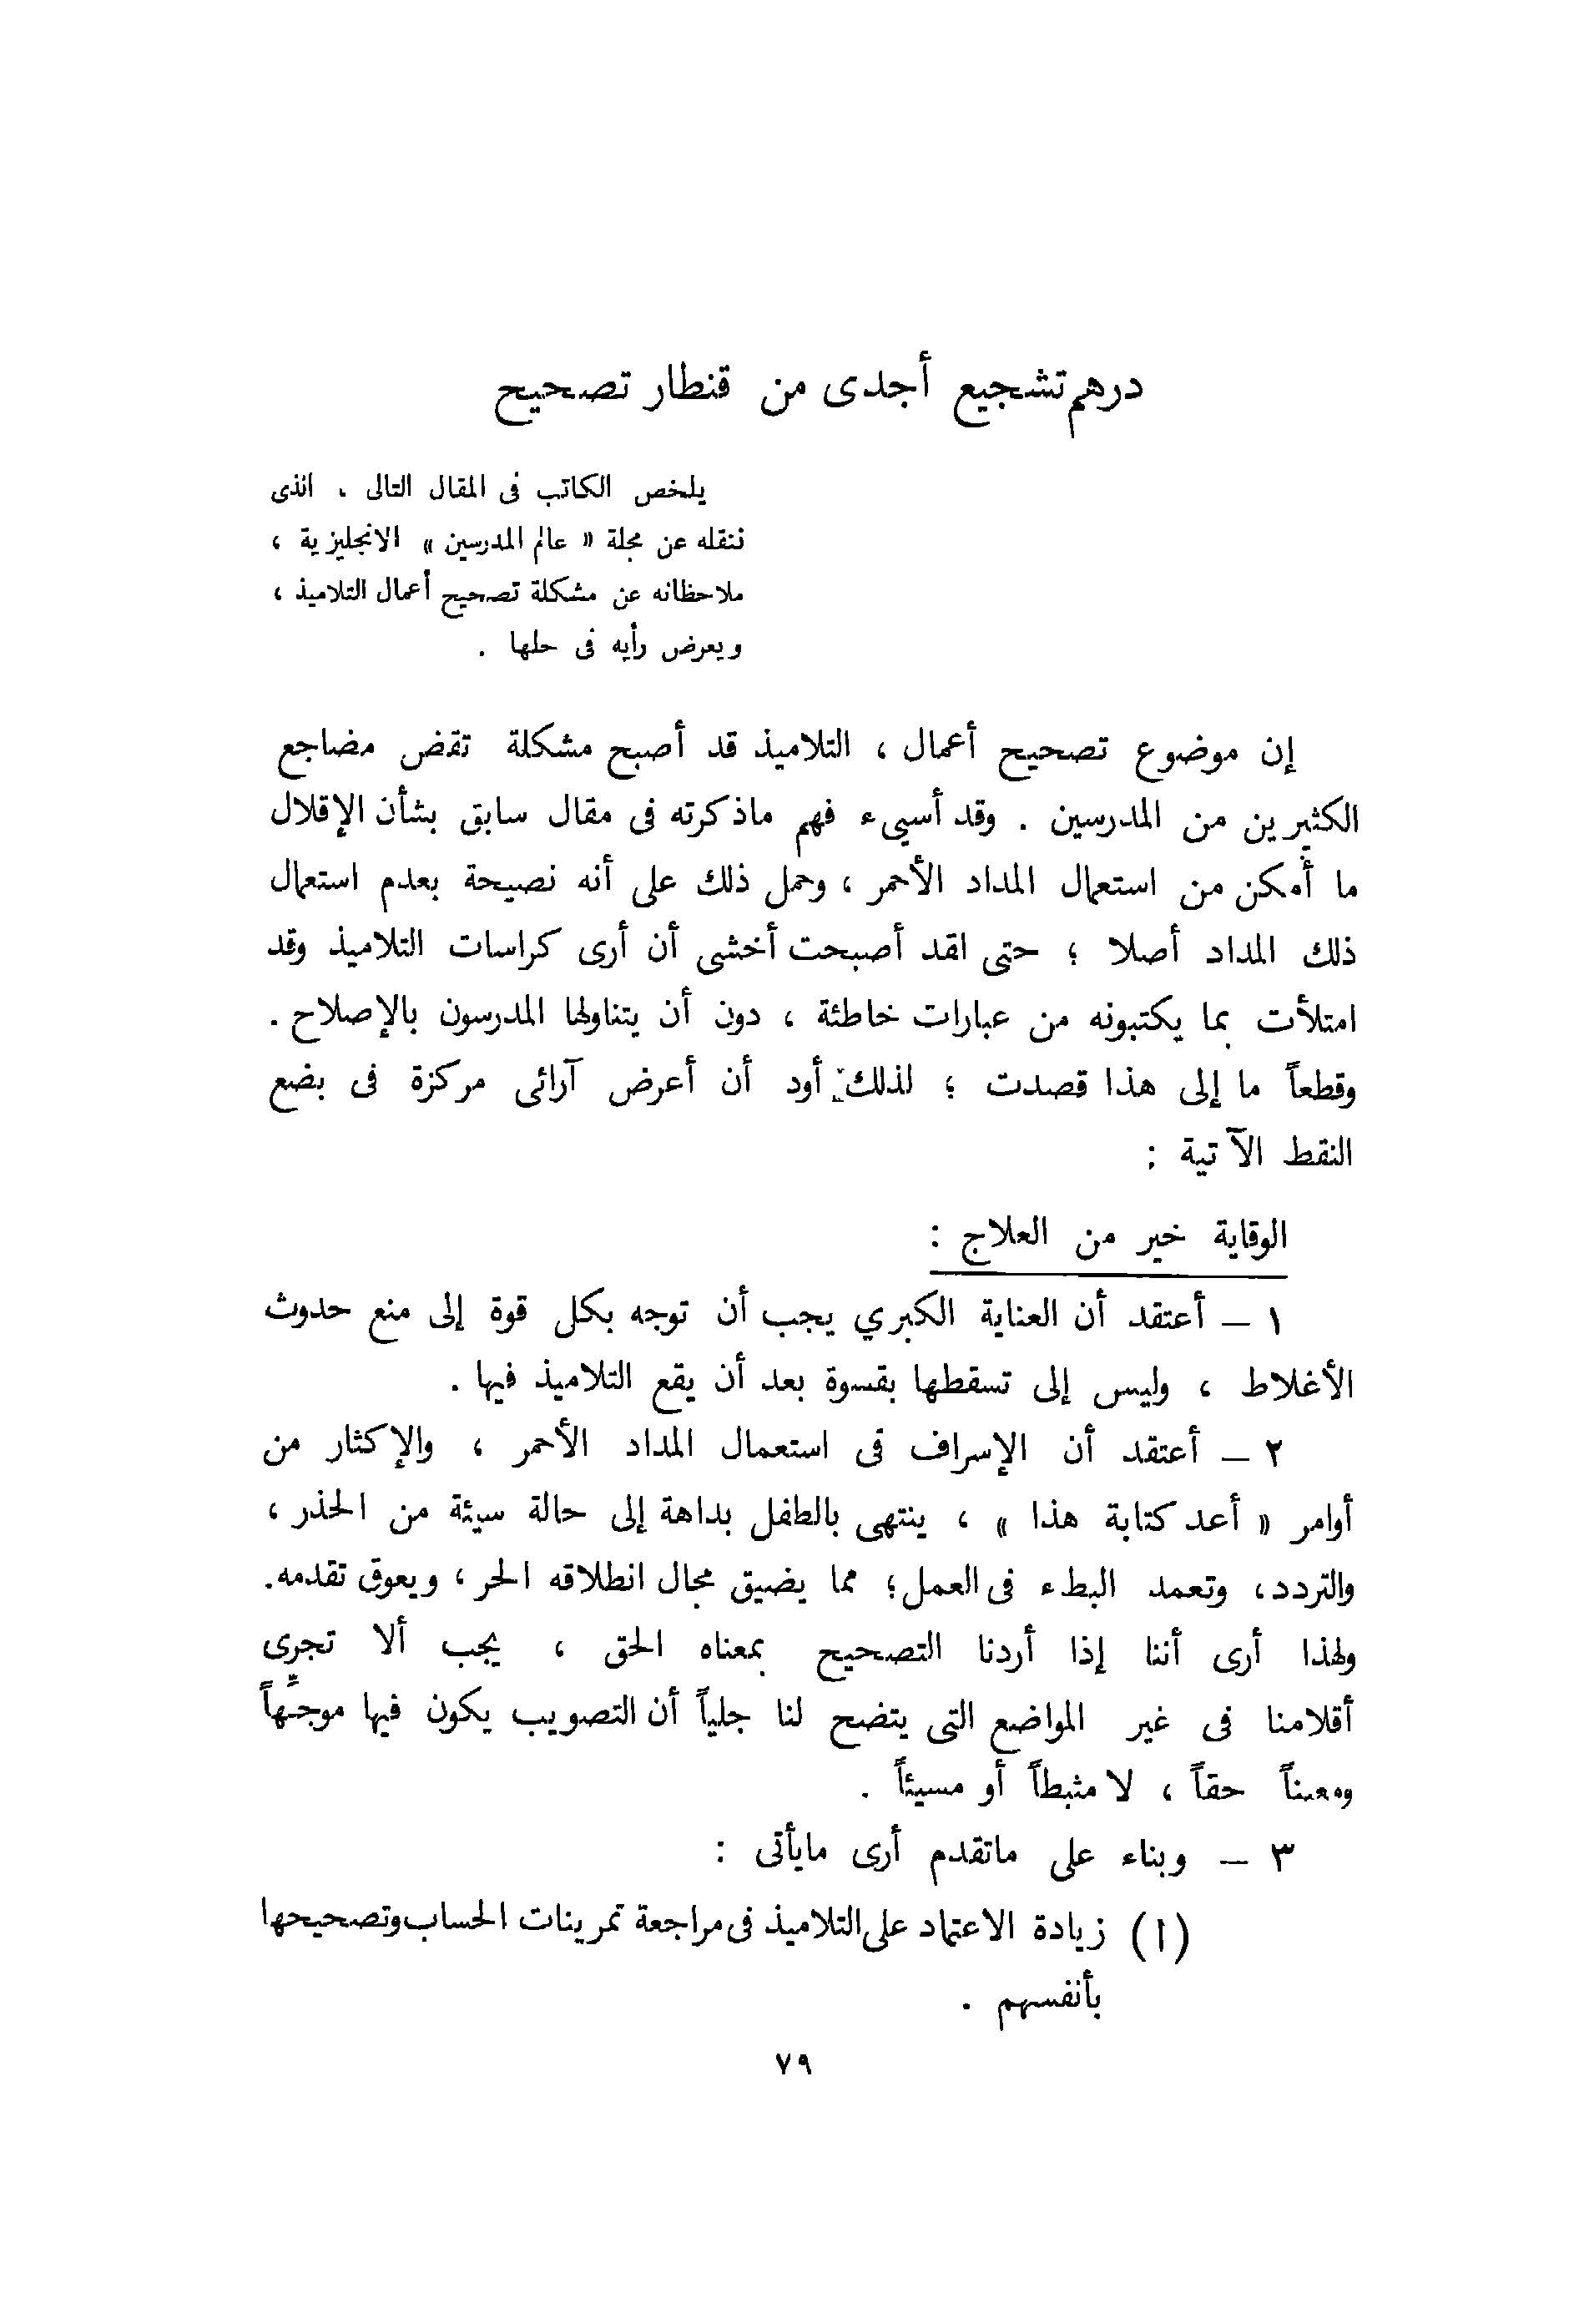 درهم تشجيع أجدى من قنطار تصحيح
يلخص الكاتب فى المقال التالى ، الذى
ننقله عن مجلة « عالم المدرسين » الانجليزية ،
ملاحظاته عن مشكلة تصحيح أعمال التلاميذ ،
ويعرض رأيه فى حلها .
إن موضوع تصحيح أعمال ، التلاميذ قد أصبح مشكلة تقض مضاجع
الكثيرين من المدرسين . وقد أسيىء فهم ماذكرته فى مقال سابق بشأن الإقلال
ما أمكن من استعمال المداد الأحمر ، وحمل ذلك على أنه نصيحة بعدم استعمال
ذلك المداد أصلا ؛ حتى لقد أصبحت أخشى أن أرى كراسات التلاميذ وقد
امتلأت بما يكتبونه من عبارات خاطئة ، دون أن يتناولها المدرسون بالإصلاح .
وقطعاً ما إلى هذا قصدت ؛ لذلك أود أن أعرض آرائى مركزة فى بضع
النقط الآتية :
الوقاية خير من العلاج :
١ – أعتقد أن العناية الكبري يجب أن توجه بكل قوة إلى منع حدوث
الأغلاط ، وليس إلى تسقطها بقسوة بعد أن يقع التلاميذ فيها .
٢ – أعتقد أن الإسراف فى استعمال المداد الأحمر ، والإكثار من
أوامر « أعد كتابة هذا » ، ينتهى بالطفل بداهة إلى حالة سيئة من الحذر ،
والتردد ، وتعمد البطء فى العمل ؛ مما يضيق مجال انطلاقه الحر ، ويعوق تقدمه.
ولهذا أرى أننا إذا أردنا التصحيح بمعناه الحق ، يجب ألا تجرى
أقلامنا فى غير المواضع التى يتضح لنا جلياً أن التصويب يكون فيها موجِّهاً
ومعيناً حقاً ، لا مثبطاً أو مسيئاً .
٣ – وبناء على ماتقدم أرى مايأتى :
(ا) زيادة الاعتماد على التلاميذ فى مراجعة تمرينات الحساب وتصحيحها
بأنفسهم .
٧٩